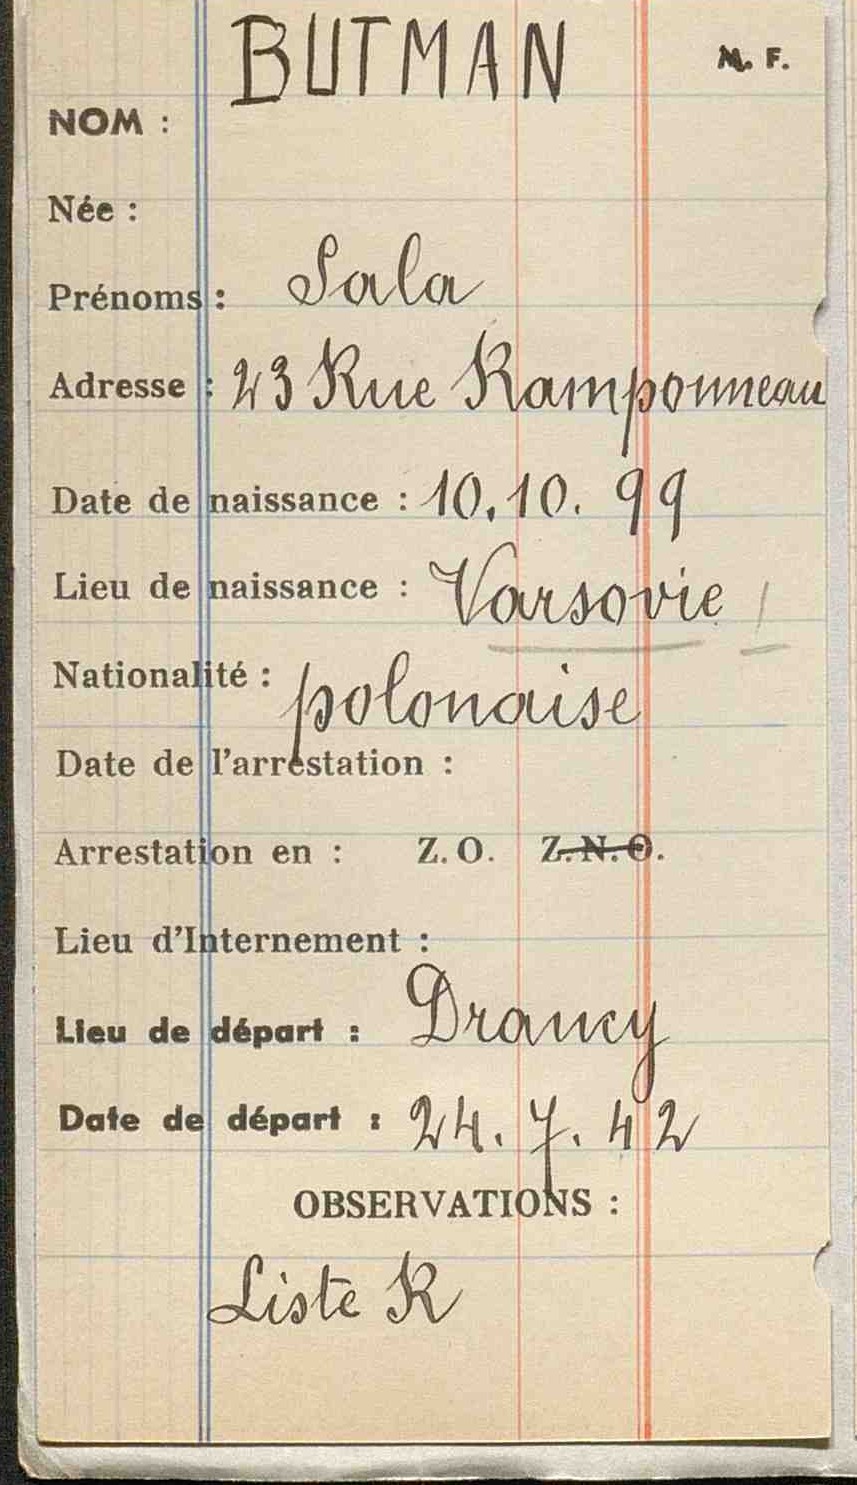 BUTMAN M. F.
NOM :
Née :
Prénoms : Sala
Adresse : 23 Rue Ramponneau
Date de naissance : 10.10. 99
Lieu de naissance : Varsovie
Nationalité : polonaise
Date de l'arrestation :
Arrestation en : Z. O. Z. N. O.
Lieu d'Internement :
Lieu de départ : Drancy
Date de départ : 24. 7. 42
OBSERVATIONS :
Liste R